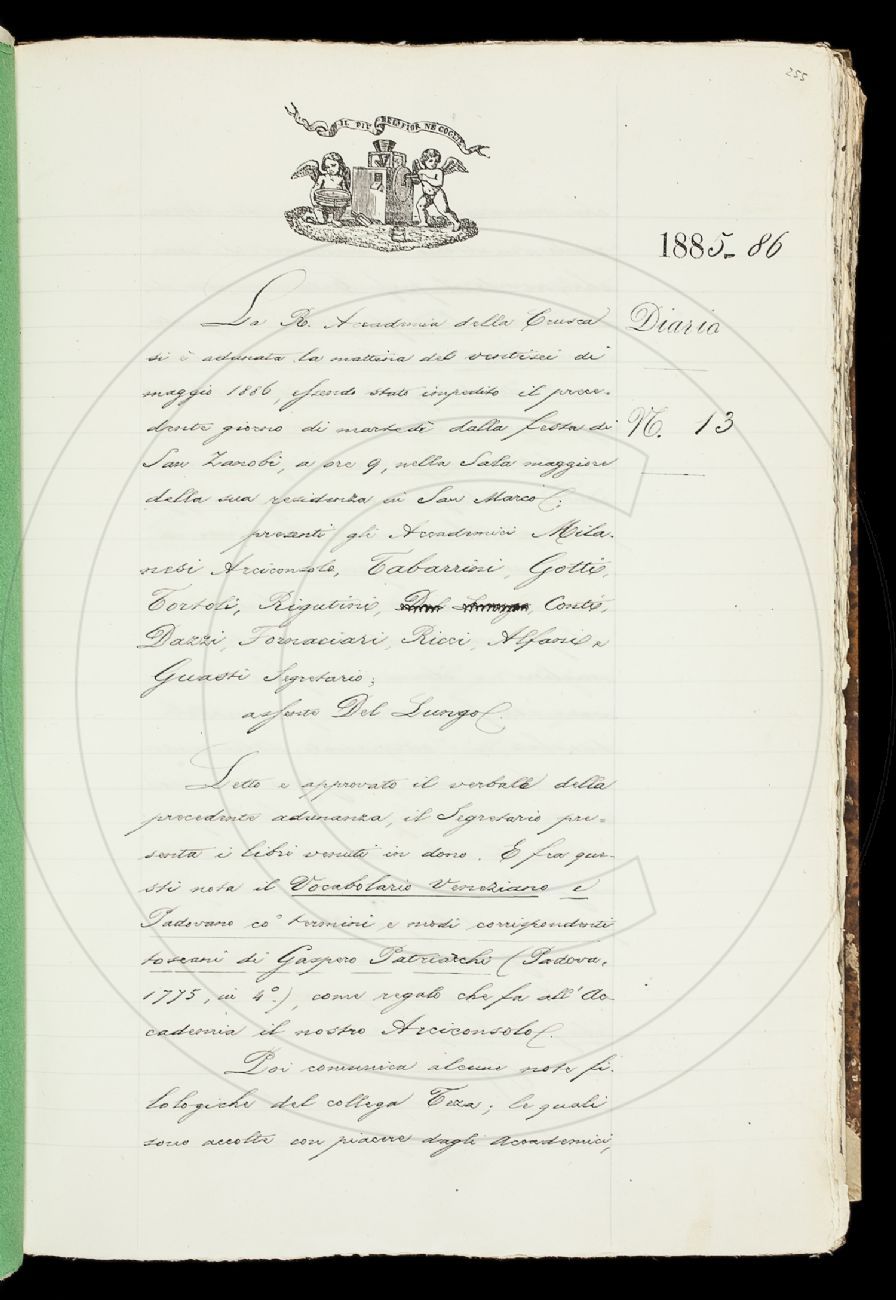 255
IL PIÙ BEL FIOR NE COGLIE
1885-86
La R. Accademia della Crusca
si è adunata la mattina del ventisei di
maggio 1886, essendo stato impedito il prece-
dente giorno di martedì dalla festa di
San Zanobi, a ore 9, nella Sala maggiore
della sua residenza in San Marco;
presenti gli Accademici Mila-
nesi Arciconsolo, Tabarrini, Gotti,
Tortoli, Rigutini, Del Lungo, Conti,
Dazzi, Fornaciari, Ricci, Alfani e
Guasti Segretario;
assente Del Lungo.
Diario
N. 13
Letto e approvato il verbale della
precedente adunanza, il Segretario pre-
senta i libri venuti in dono. E fra que-
sti nota il Vocabolario Veneziano e
Padovano co' termini e modi corrispondenti
toscani di Gaspero Patriarchi (Padova,
1775, in 4°.), come regalo che fa all'Ac-
cademia il nostro Arciconsolo.
Poi comunica alcune note fi-
lologiche del collega Teza; le quali
sono accolte con piacere dagli Accademici,